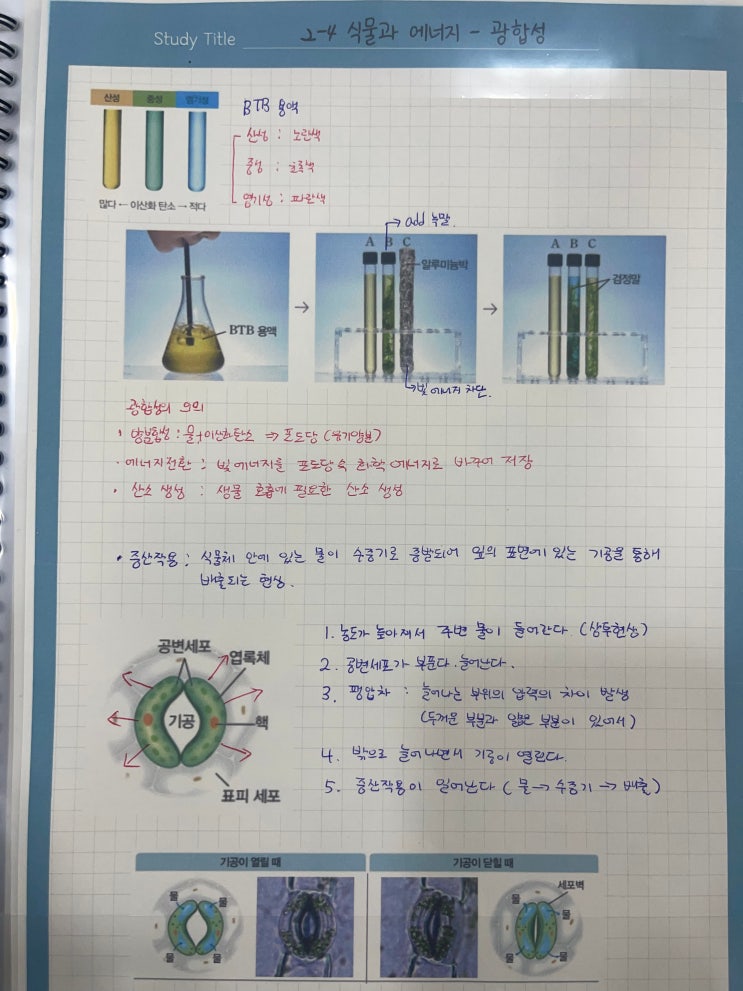 Study Title 2-4 식물과 에너지 - 광합성
산성 중성 염기성
많다 ← 이산화 탄소 → 적다
BTB 용액
산성 : 노란색
중성 : 초록색
염기성 : 파란색
add 녹말.
BTB 용액
A B C
알루미늄박
빛에너지 차단.
A B C
검정말
광합성의 의의
· 양분합성 : 물+이산화탄소 ⇒ 포도당 (유기양분)
· 에너지전환 : 빛에너지를 포도당 속 화학에너지로 바꾸어 저장
· 산소 생성 : 생물 호흡에 필요한 산소 생성
· 증산작용 : 식물체 안에 있는 물이 수증기로 증발되어 잎의 표면에 있는 기공을 통해
배출되는 현상.
공변세포
엽록체
기공
핵
표피 세포
1. 농도가 높아져서 주변 물이 들어간다. (삼투현상)
2. 공변세포가 부푼다. 늘어난다.
3. 팽압차 : 늘어나는 부위의 압력의 차이 발생
(두꺼운 부분과 얇은 부분이 있어서)
4. 밖으로 늘어나면서 기공이 열린다.
5. 증산작용이 일어난다 ( 물 → 수증기 → 배출)
기공이 열릴 때
물 물
물 물
기공이 닫힐 때
세포벽
물 물
물 물